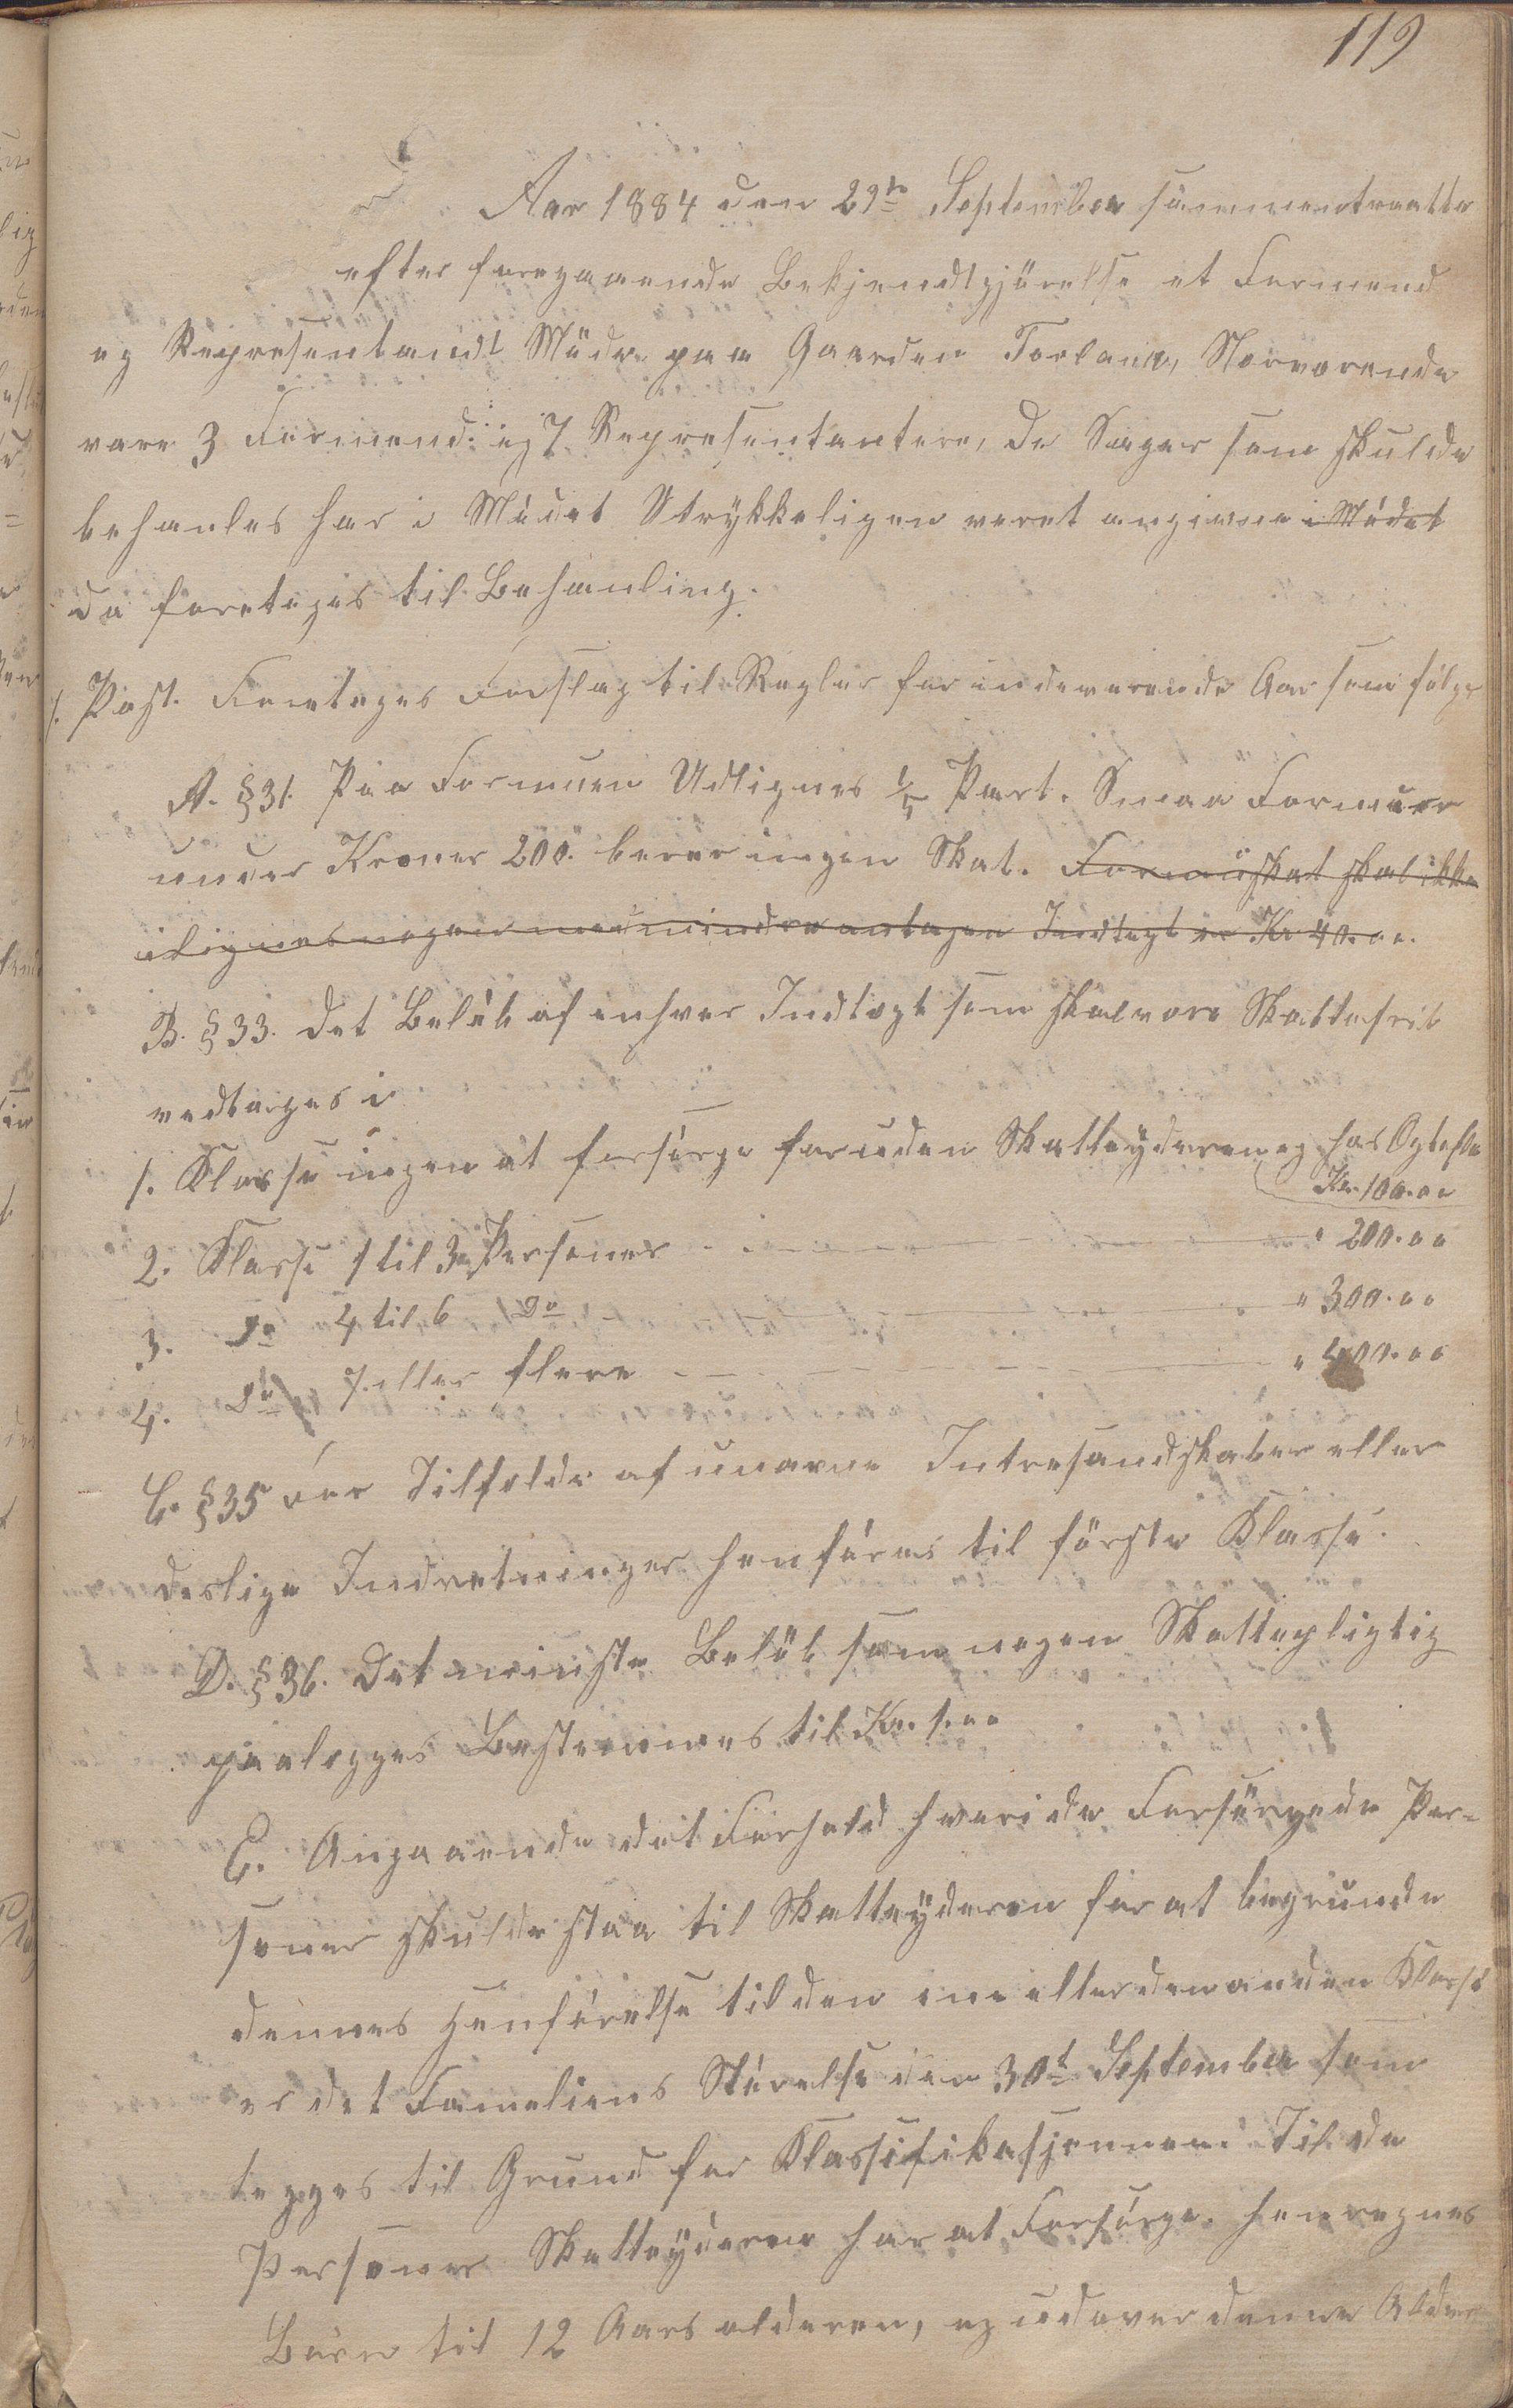 119
Aar 1884 den 29te September sammentraatte
efter foregaaende Bekjendtgjörelse et Formend
og Representandt Möde paa Gaarden Torland, Nervarende
vare 3 Formend og 7 Representantere, De Sager som skulde
behanles har i Mödet Utrykkeligen veret angivne i Mödet
da foretoges til Behanling.
1. Post. Foretoges Forslag til Regler for indeverende Aar som fölge
A. § 31. Paa Formuen Udlignes 1/5 Part. Smaa Formuer
under Kroner 200. berer ingen Skat. Formuskat skal ikke
ilignes nogen med mindre antagen Indtegt en Kr 40.00.
B. § 33. Det Belöb af enhver Indtegt som skal vere Skattefrit
vedtages i
1. Klasse ingen at forsörge foruden Skatteyderen og hos Ogtefle
Kr. 100.00
2. Klasse 1 til 3 Personer " 200.00
3. Do 4 til 6 Do " 300.00
4. Do 7 eller flere " 400.00
C. § 35 Der Tilfelde af unavne Intresandskaber eller
deslige Indretninger henföres til förste Klasse.
D. § 36. Det minste Belöb som nogen Skattepligtig
paalegges Bestemmes til Kr. 1.00
E. Angaaende det Forhold hvori de Forsörgede Per-
soner skulde staa til Skatteyderen for at begrunde
dennes Henförelse til den ene eller den anden Klasse
er det Fameliens Störelse den 30t September som
legges til Grund for Klassifikasjonnen. Til de
Personer Skatteyderen har at Forsörge. henregnes
Börn til 12 Aars alderen, og udover denne Alder